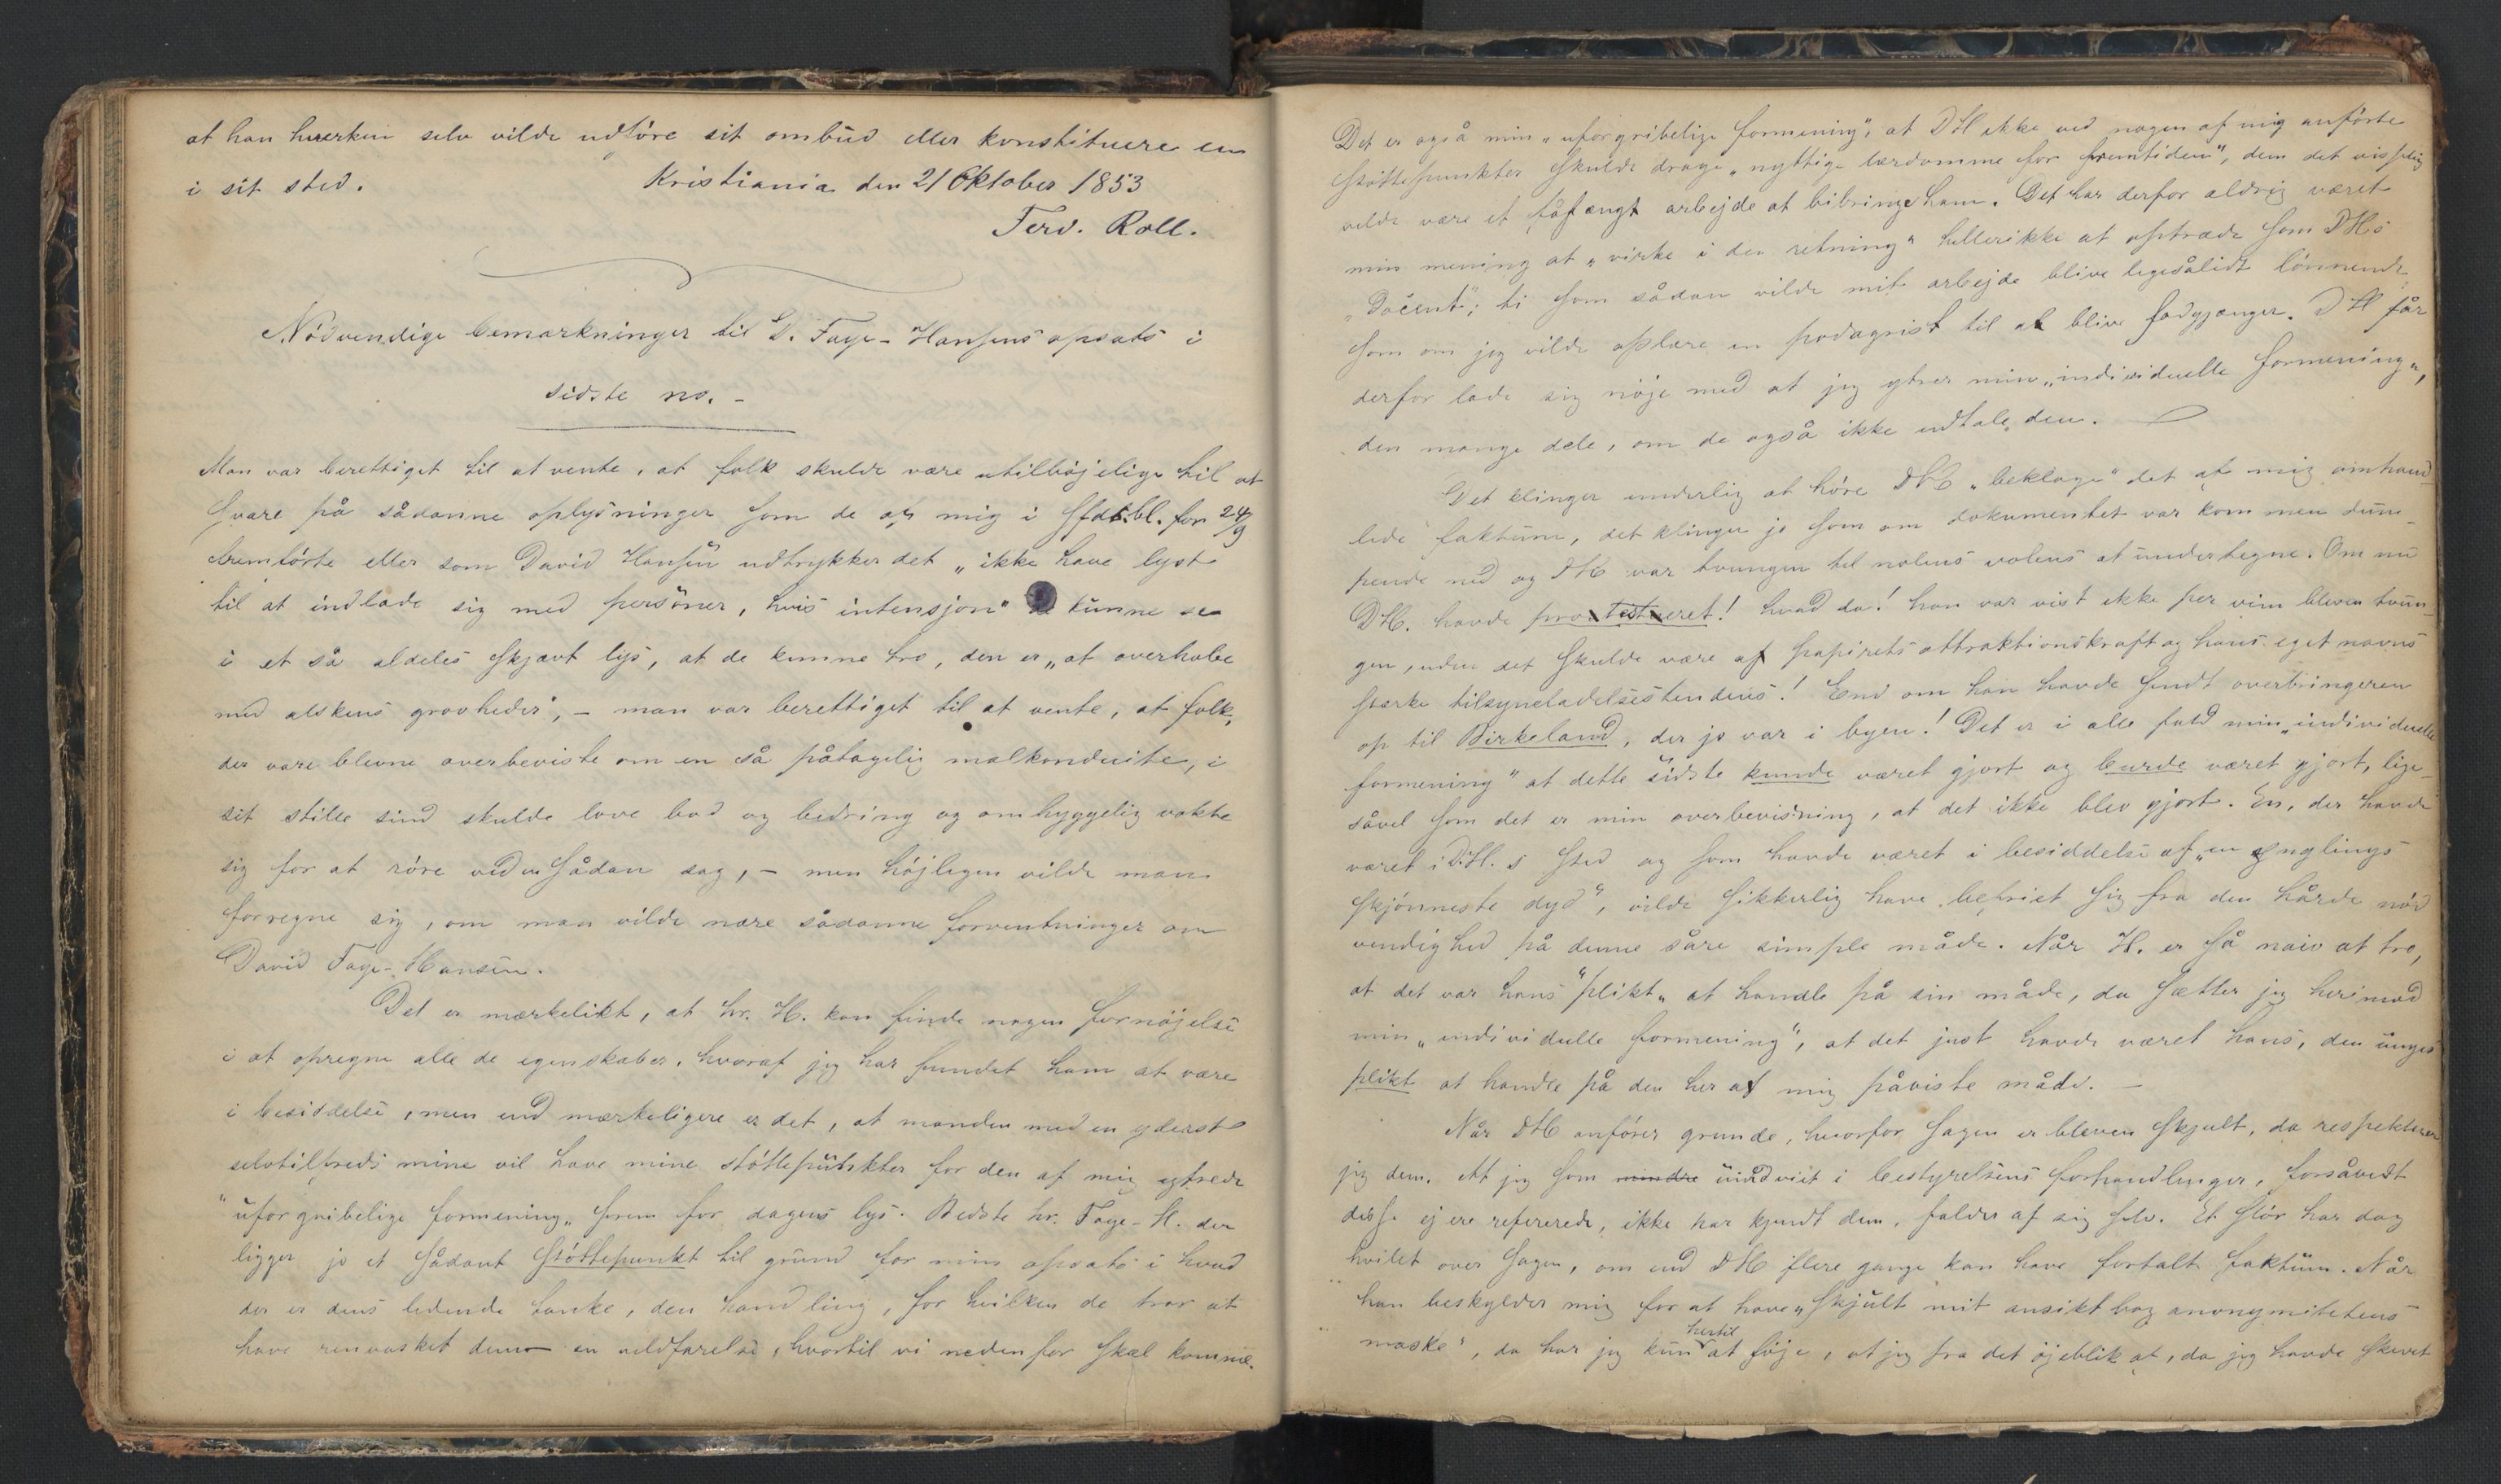 at han hverken selv vilde udføre sit ombud eller konstituere en
i sit sted. Kristiania den 21 Oktober 1853
Ferd. Roll.
Nødvendige bemærkninger til D. Faye-Hansens opsats i
sidste no. -
Man var berettiget til at vente, at folk skulde være utilbøjelige til at
svare på sådanne oplysninger som de af mig i Sfds.bl. for 24/9
fremførte eller som David Hansen udtrykker det „ikke have lyst
til at indlade sig med personer, hvis intensjon" de kunne se
i et så aldeles skjævt lys, at de kunne tro, den er „at overhøbe
med alskens grovheder", - man var berettiget til at vente, at folk,
der vare blevne overbeviste om en så påtagelig malkonduite, i
sit stille sind skulde love bod og bedring og omhyggelig vokte
sig for at røre ved en sådan sag, - men højligen vilde man
forregne sig, om man vilde nære sådanne forventninger om
David Faye-Hansen.
Det er mærkelikt, at hr. H. kan finde nogen fornøjelse
i at opregne alle de egenskaber, hvoraf jeg har fundet ham at være
i besiddelse, men end mærkeligere er det, at manden med en yderst
selvtilfreds mine vil have mine støttepunkter for den af mig ytrede
"uforgribelige formening„ frem for dagens lys. Bedste hr. Faye-H. der
ligger jo et sådant støttepunkt til grund for min opsats i hvad
der er dens ledende tanke, den handling, for hvilken de tror at
have renvasket dem en vildfarelse, hvortil vi nedenfor skal komme.
Det er også min „uforgribelige formening", at DH ikke ved nogen af mig anførte
støttepunkter skulde drage „nyttige lærdomme for fremtiden", dem det visselig
vilde være et fåfængt arbejde at bibringe ham. Det har derfor aldrig været
min mening at „virke i den retning" hellerikke at optræde som DHs
„Docent"; ti som sådan vilde mit arbejde blive ligesålidt lønnende
som om jeg vilde oplære en podagrist til at blive fodgjænger. DH får
derfor lade sig nøje med at jeg ytrer min „individuelle formening",
den mange dele, om de også ikke udtale den.
Det klinger underlig at høre DH „beklage" det af mig omhand-
lede faktum, det klinger jo som om dokumentet var kommen dum-
pende ned og DH var tvungen til nolens volens at undertegne. Om nu
DH. havde protesteret! hvad da! han var vist ikke per vim bleven tvun-
gen, uden det skulde være af papirets attraktionskraft og hans eget navns
stærke tilsyneladelsestendens! End om han havde sendt overbringeren
op til Birkeland, der jo var i byen! Det er i alle fald min „individuelle
formening" at dette sidste kunde været gjort og burde været gjort, lige-
såvel som det er min overbevisning, at det ikke blev gjort. En, der havde
været i D.H.s sted og som havde været i besiddelse af „en ynglings
skjønneste dyd", vilde sikkerlig have befriet sig fra den hårde nød
vendighed på denne såre simple måde. Når H. er så naiv at tro,
at det var hans "plikt„ at handle på sin måde, da sætter jeg herimod
min „individuelle formening", at det just havde været hans, den unges
plikt at handle på den her af mig påviste måde. -
Når DH anfører grunde, hvorfor sagen er bleven skjult, da respekterer
jeg dem. At jeg som mindre indviet i bestyrelsens forhandlinger, forsåvidt
disse ej ere refererede, ikke har kjendt dem, falder af sig selv. Et slør har dog
hvilet over sagen, om end DH flere gange kan have fortalt faktum. Når
han beskylder mig for at have „skjult mit ansikt bag anonymitetens
maske", da har jeg kun hertil at føje, at jeg fra det øjeblik af, da jeg havde skrevet